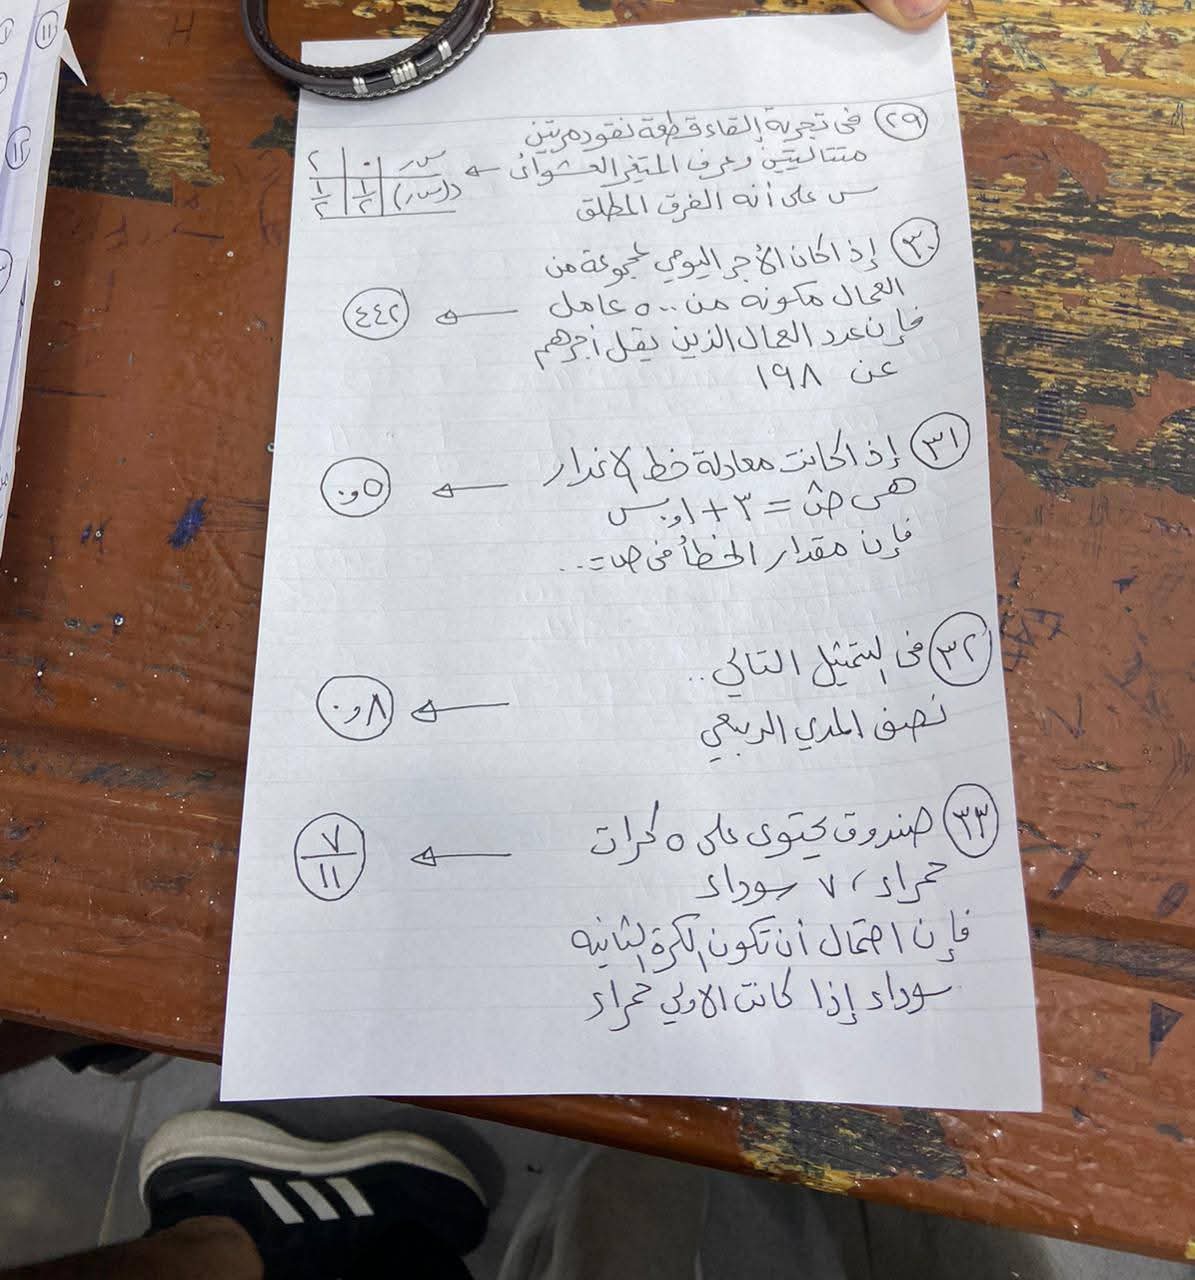 ١١
١٢
٢٩ في تجربة إلقاء قطعة نقود مرتين
متتاليتين وعرف المتغير العشوائى ←
س على أنه الفرق المطلق
سر | ٠ | ٢
د(سر) | ١/٢ | ١/٢
٣٠ إذا كان الأجر اليومي لمجموعة من
العمال مكونه من ٥٠٠ عامل ← ٤٤٢
فإن عدد العمال الذين يقل أجرهم
عن ١٩٨
٣١ إذا كانت معادلة خط الانحدار ← ٥و٠
هى صَ = ٣ + ١و٠ س
فإن مقدار الخطأ فى ص = ..
٣٢ فى التمثيل التالي ..
نصف المدي الربيعي ← ٨و٠
٣٣ صندوق يحتوى على ٥ كرات
حمراء ، ٧ سوداء ← ٧/١١
فإن احتمال أن تكون الكرة الثانيه
سوداء إذا كانت الاولي حمراء